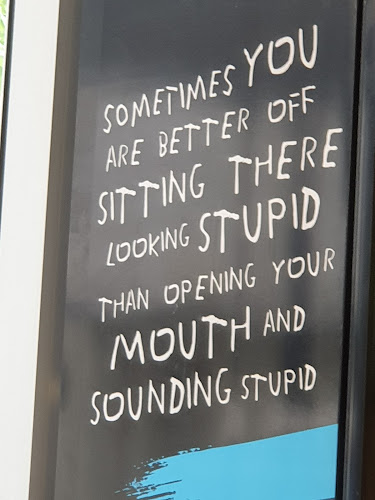 SOMETIMES YOU
ARE BETTER OFF
SITTING THERE
LOOKING STUPID
THAN OPENING YOUR
MOUTH AND
SOUNDING STUPID